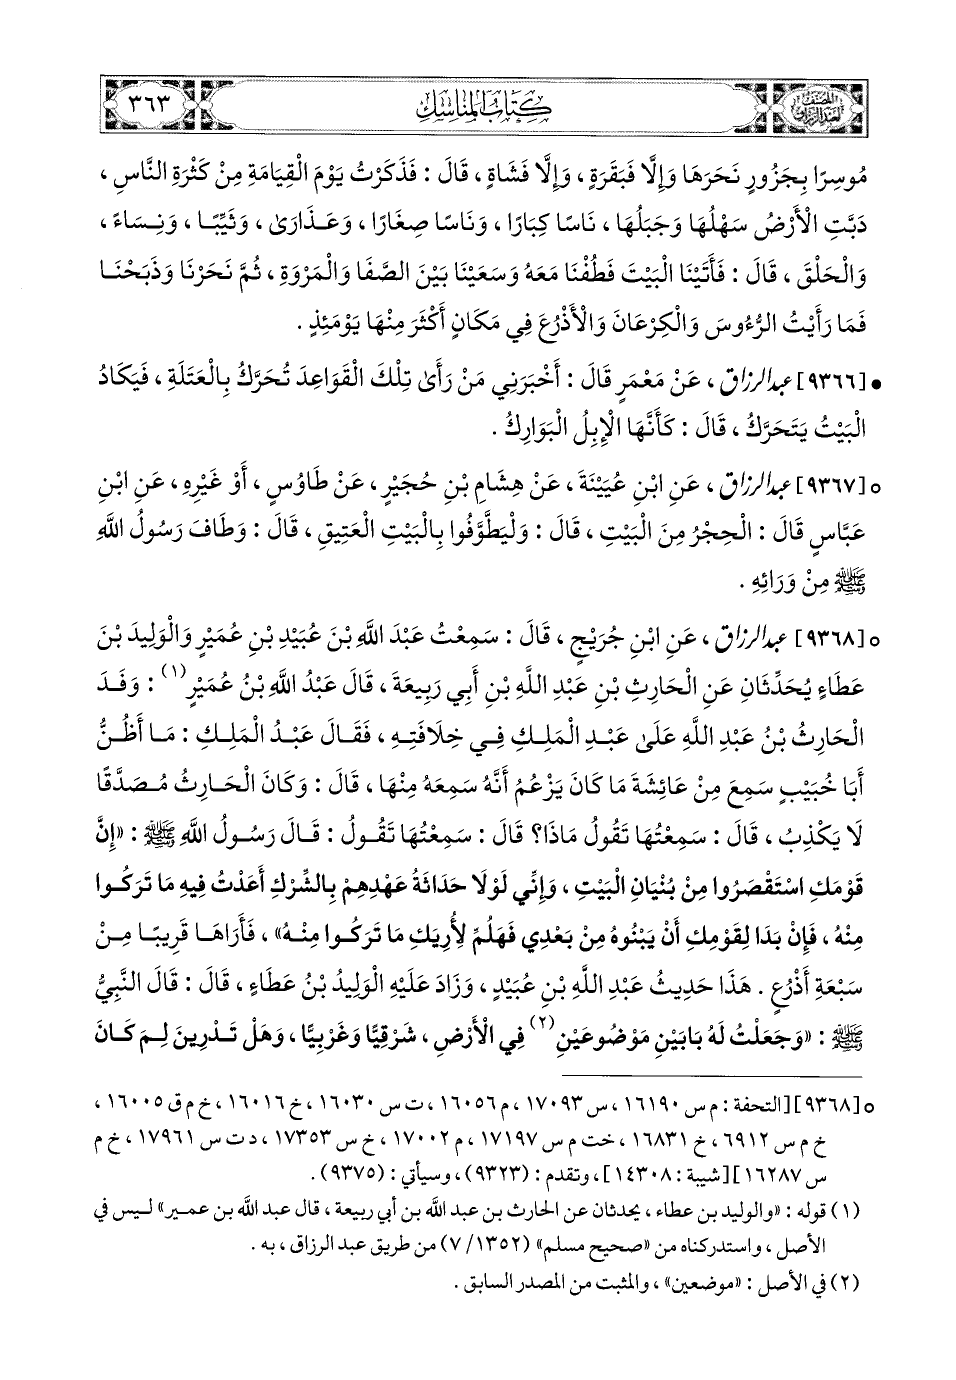 المصنف لعبد الرزاق
كتاب المناسك
٣٦٣
مُوسِرًا بِجَزُورٍ نَحَرَهَا وَإِلَّا فَبَقَرَةٍ ، وَإِلَّا فَشَاةٍ ، قَالَ : فَذَكَرْتُ يَوْمَ الْقِيَامَةِ مِنْ كَثْرَةِ النَّاسِ ،
دَبَّتِ الْأَرْضُ سَهْلُهَا وَجَبَلُهَا ، نَاسًا كِبَارًا ، وَنَاسًا صِغَارًا ، وَعَذَارَىٰ ، وَثَيِّبًا ، وَنِسَاءً ،
وَالْحَلْقَ ، قَالَ : فَأَتَيْنَا الْبَيْتَ فَطُفْنَا مَعَهُ وَسَعَيْنَا بَيْنَ الصَّفَا وَالْمَرْوَةِ ، ثُمَّ نَحَرْنَا وَذَبَحْنَا
فَمَا رَأَيْتُ الرُّءُوسَ وَالْكِرْعَانَ وَالْأَذْرُعَ فِي مَكَانٍ أَكْثَرَ مِنْهَا يَوْمَئِذٍ .
• [٩٣٦٦] عبد الرزاق ، عَنْ مَعْمَرٍ قَالَ : أَخْبَرَنِي مَنْ رَأَىٰ تِلْكَ الْقَوَاعِدَ تُحَرَّكُ بِالْعَتَلَةِ ، فَيَكَادُ
الْبَيْتُ يَتَحَرَّكُ ، قَالَ : كَأَنَّهَا الْإِبِلُ الْبَوَارِكُ .
○ [٩٣٦٧] عبد الرزاق ، عَنِ ابْنِ عُيَيْنَةَ ، عَنْ هِشَامِ بْنِ حُجَيْرٍ ، عَنْ طَاوُسٍ ، أَوْ غَيْرِهِ ، عَنِ ابْنِ
عَبَّاسٍ قَالَ : الْحِجْرُ مِنَ الْبَيْتِ ، قَالَ : وَلْيَطَّوَّفُوا بِالْبَيْتِ الْعَتِيقِ ، قَالَ : وَطَافَ رَسُولُ اللَّهِ
ﷺ مِنْ وَرَائِهِ .
○ [٩٣٦٨] عبد الرزاق ، عَنِ ابْنِ جُرَيْجٍ ، قَالَ : سَمِعْتُ عَبْدَ اللَّهِ بْنَ عُبَيْدِ بْنِ عُمَيْرٍ وَالْوَلِيدَ بْنَ
عَطَاءٍ يُحَدِّثَانِ عَنِ الْحَارِثِ بْنِ عَبْدِ اللَّهِ بْنِ أَبِي رَبِيعَةَ ، قَالَ عَبْدُ اللَّهِ بْنُ عُمَيْرٍ (١) : وَفَدَ
الْحَارِثُ بْنُ عَبْدِ اللَّهِ عَلَىٰ عَبْدِ الْمَلِكِ فِي خِلَافَتِهِ ، فَقَالَ عَبْدُ الْمَلِكِ : مَا أَظُنُّ
أَبَا خُبَيْبٍ سَمِعَ مِنْ عَائِشَةَ مَا كَانَ يَزْعُمُ أَنَّهُ سَمِعَهُ مِنْهَا ، قَالَ : وَكَانَ الْحَارِثُ مُصَدَّقًا
لَا يَكْذِبُ ، قَالَ : سَمِعْتُهَا تَقُولُ مَاذَا؟ قَالَ : سَمِعْتُهَا تَقُولُ : قَالَ رَسُولُ اللَّهِ ﷺ : «إِنَّ
قَوْمَكِ اسْتَقْصَرُوا مِنْ بُنْيَانِ الْبَيْتِ ، وَإِنِّي لَوْلَا حَدَاثَةُ عَهْدِهِمْ بِالشِّرْكِ أَعَدْتُ فِيهِ مَا تَرَكُوا
مِنْهُ ، فَإِنْ بَدَا لِقَوْمِكِ أَنْ يَبْنُوهُ مِنْ بَعْدِي فَهَلُمِّ لِأُرِيَكِ مَا تَرَكُوا مِنْهُ» ، فَأَرَاهَا قَرِيبًا مِنْ
سَبْعَةِ أَذْرُعٍ . هَذَا حَدِيثُ عَبْدِ اللَّهِ بْنِ عُبَيْدٍ ، وَزَادَ عَلَيْهِ الْوَلِيدُ بْنُ عَطَاءٍ ، قَالَ : قَالَ النَّبِيُّ
ﷺ : «وَجَعَلْتُ لَهُ بَابَيْنِ مَوْضُوعَيْنِ (٢) فِي الْأَرْضِ ، شَرْقِيًّا وَغَرْبِيًّا ، وَهَلْ تَدْرِينَ لِمَ كَانَ
○ [٩٣٦٨] [التحفة : م س ١٦١٩٠ ، س ١٧٠٩٣ ، م ١٦٠٥٦ ، ت س ١٦٠٣٠ ، خ ١٦٠١٦ ، خ م ق ١٦٠٠٥ ،
خ م س ٦٩١٢ ، خ ١٦٨٣١ ، خت م س ١٧١٩٧ ، م ١٧٠٠٢ ، خ س ١٧٣٥٣ ، د ت س ١٧٩٦١ ، خ م
س ١٦٢٨٧] [شيبة : ١٤٣٠٨] ، وتقدم : (٩٣٢٣) ، وسيأتي : (٩٣٧٥) .
(١) قوله : «والوليد بن عطاء ، يحدثان عن الحارث بن عبد الله بن أبي ربيعة ، قال عبد الله بن عمير» ليس في
الأصل ، واستدركناه من «صحيح مسلم» (١٣٥٢/ ٧) من طريق عبد الرزاق ، به .
(٢) في الأصل : «موضعين» ، والمثبت من المصدر السابق .